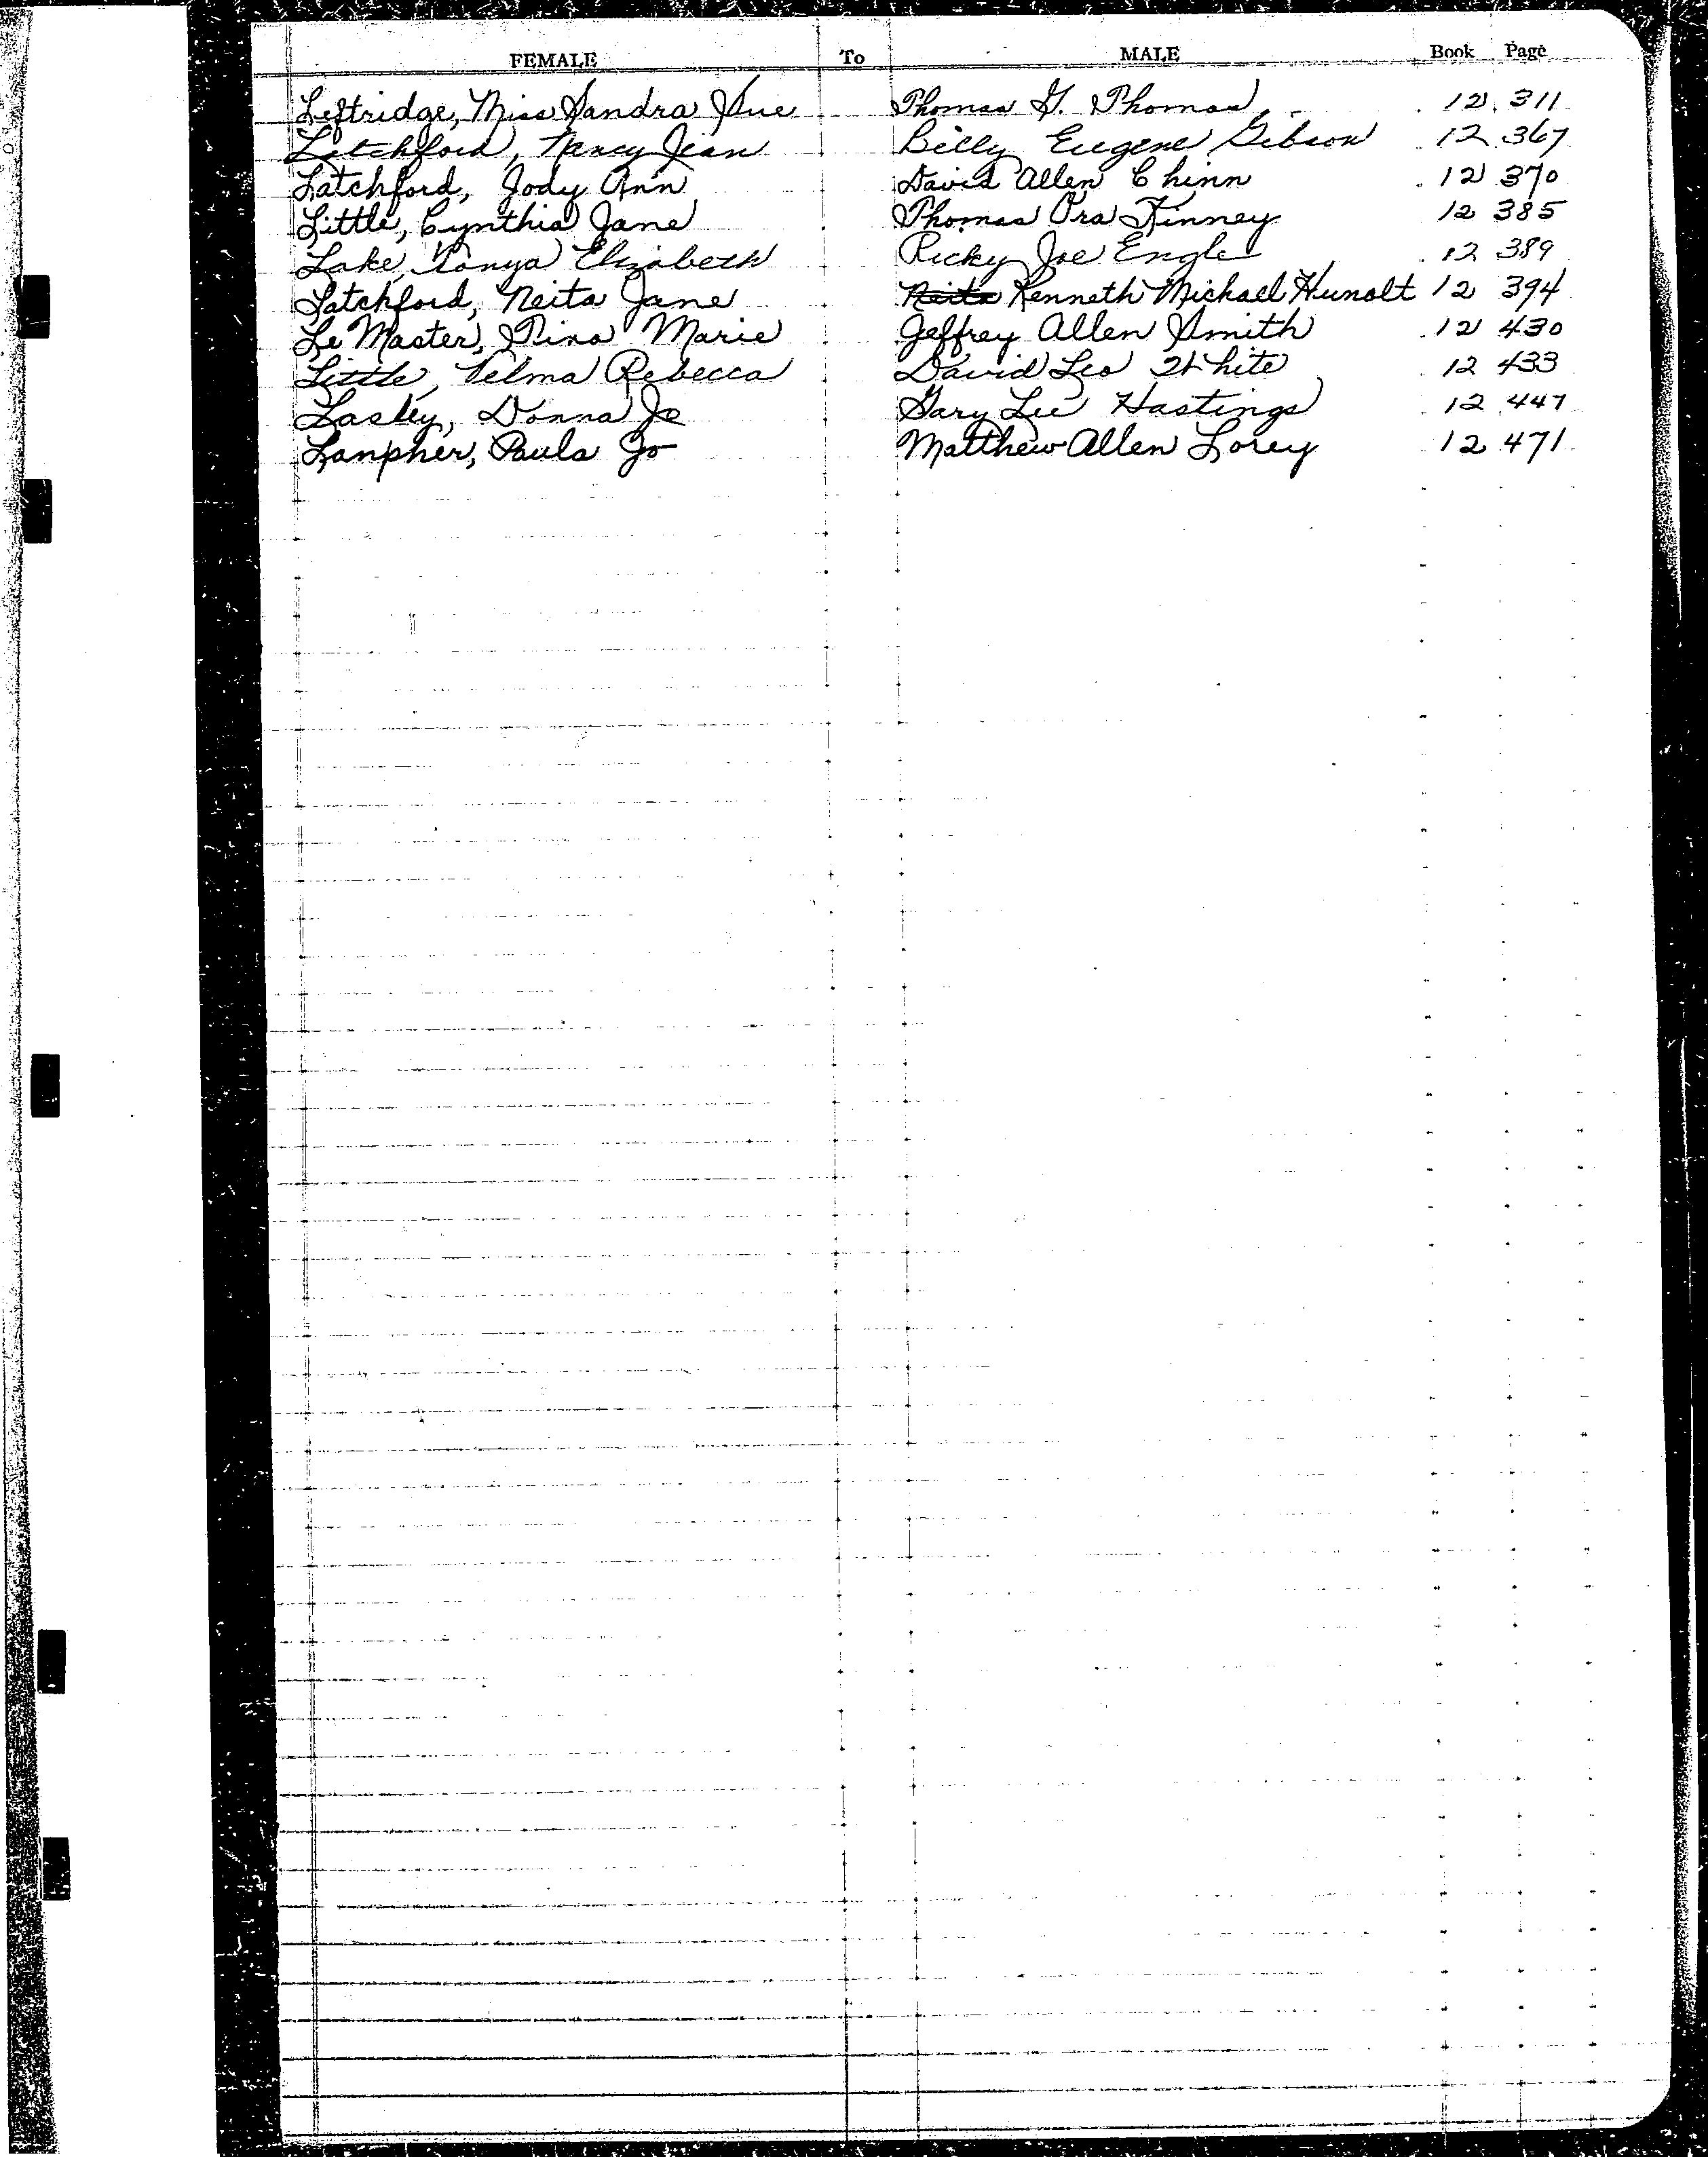 FEMALE To MALE Book Page
Leftridge, Miss Sandra Sue Thomas G. Thomas 12 311
Latchford, Nancy Jean Billy Eugene Gibson 12 367
Latchford, Jody Ann David Allen Chinn 12 370
Little, Cynthia Jane Thomas Ora Kinney 12 385
Lake, Tonya Elizabeth Ricky Joe Engle 12 389
Latchford, Neita Jane Neita Kenneth Michael Hunolt 12 394
Le Master, Tina Marie Jeffrey Allen Smith 12 430
Little, Velma Rebecca David Leo White 12 433
Lasley, Donna Jo Gary Lee Hastings 12 447
Lanpher, Paula Jo Matthew Allen Lorey 12 471